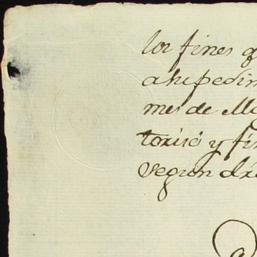 los fines q
a su pedim
mes de Ma
torisó y fir
segun dro